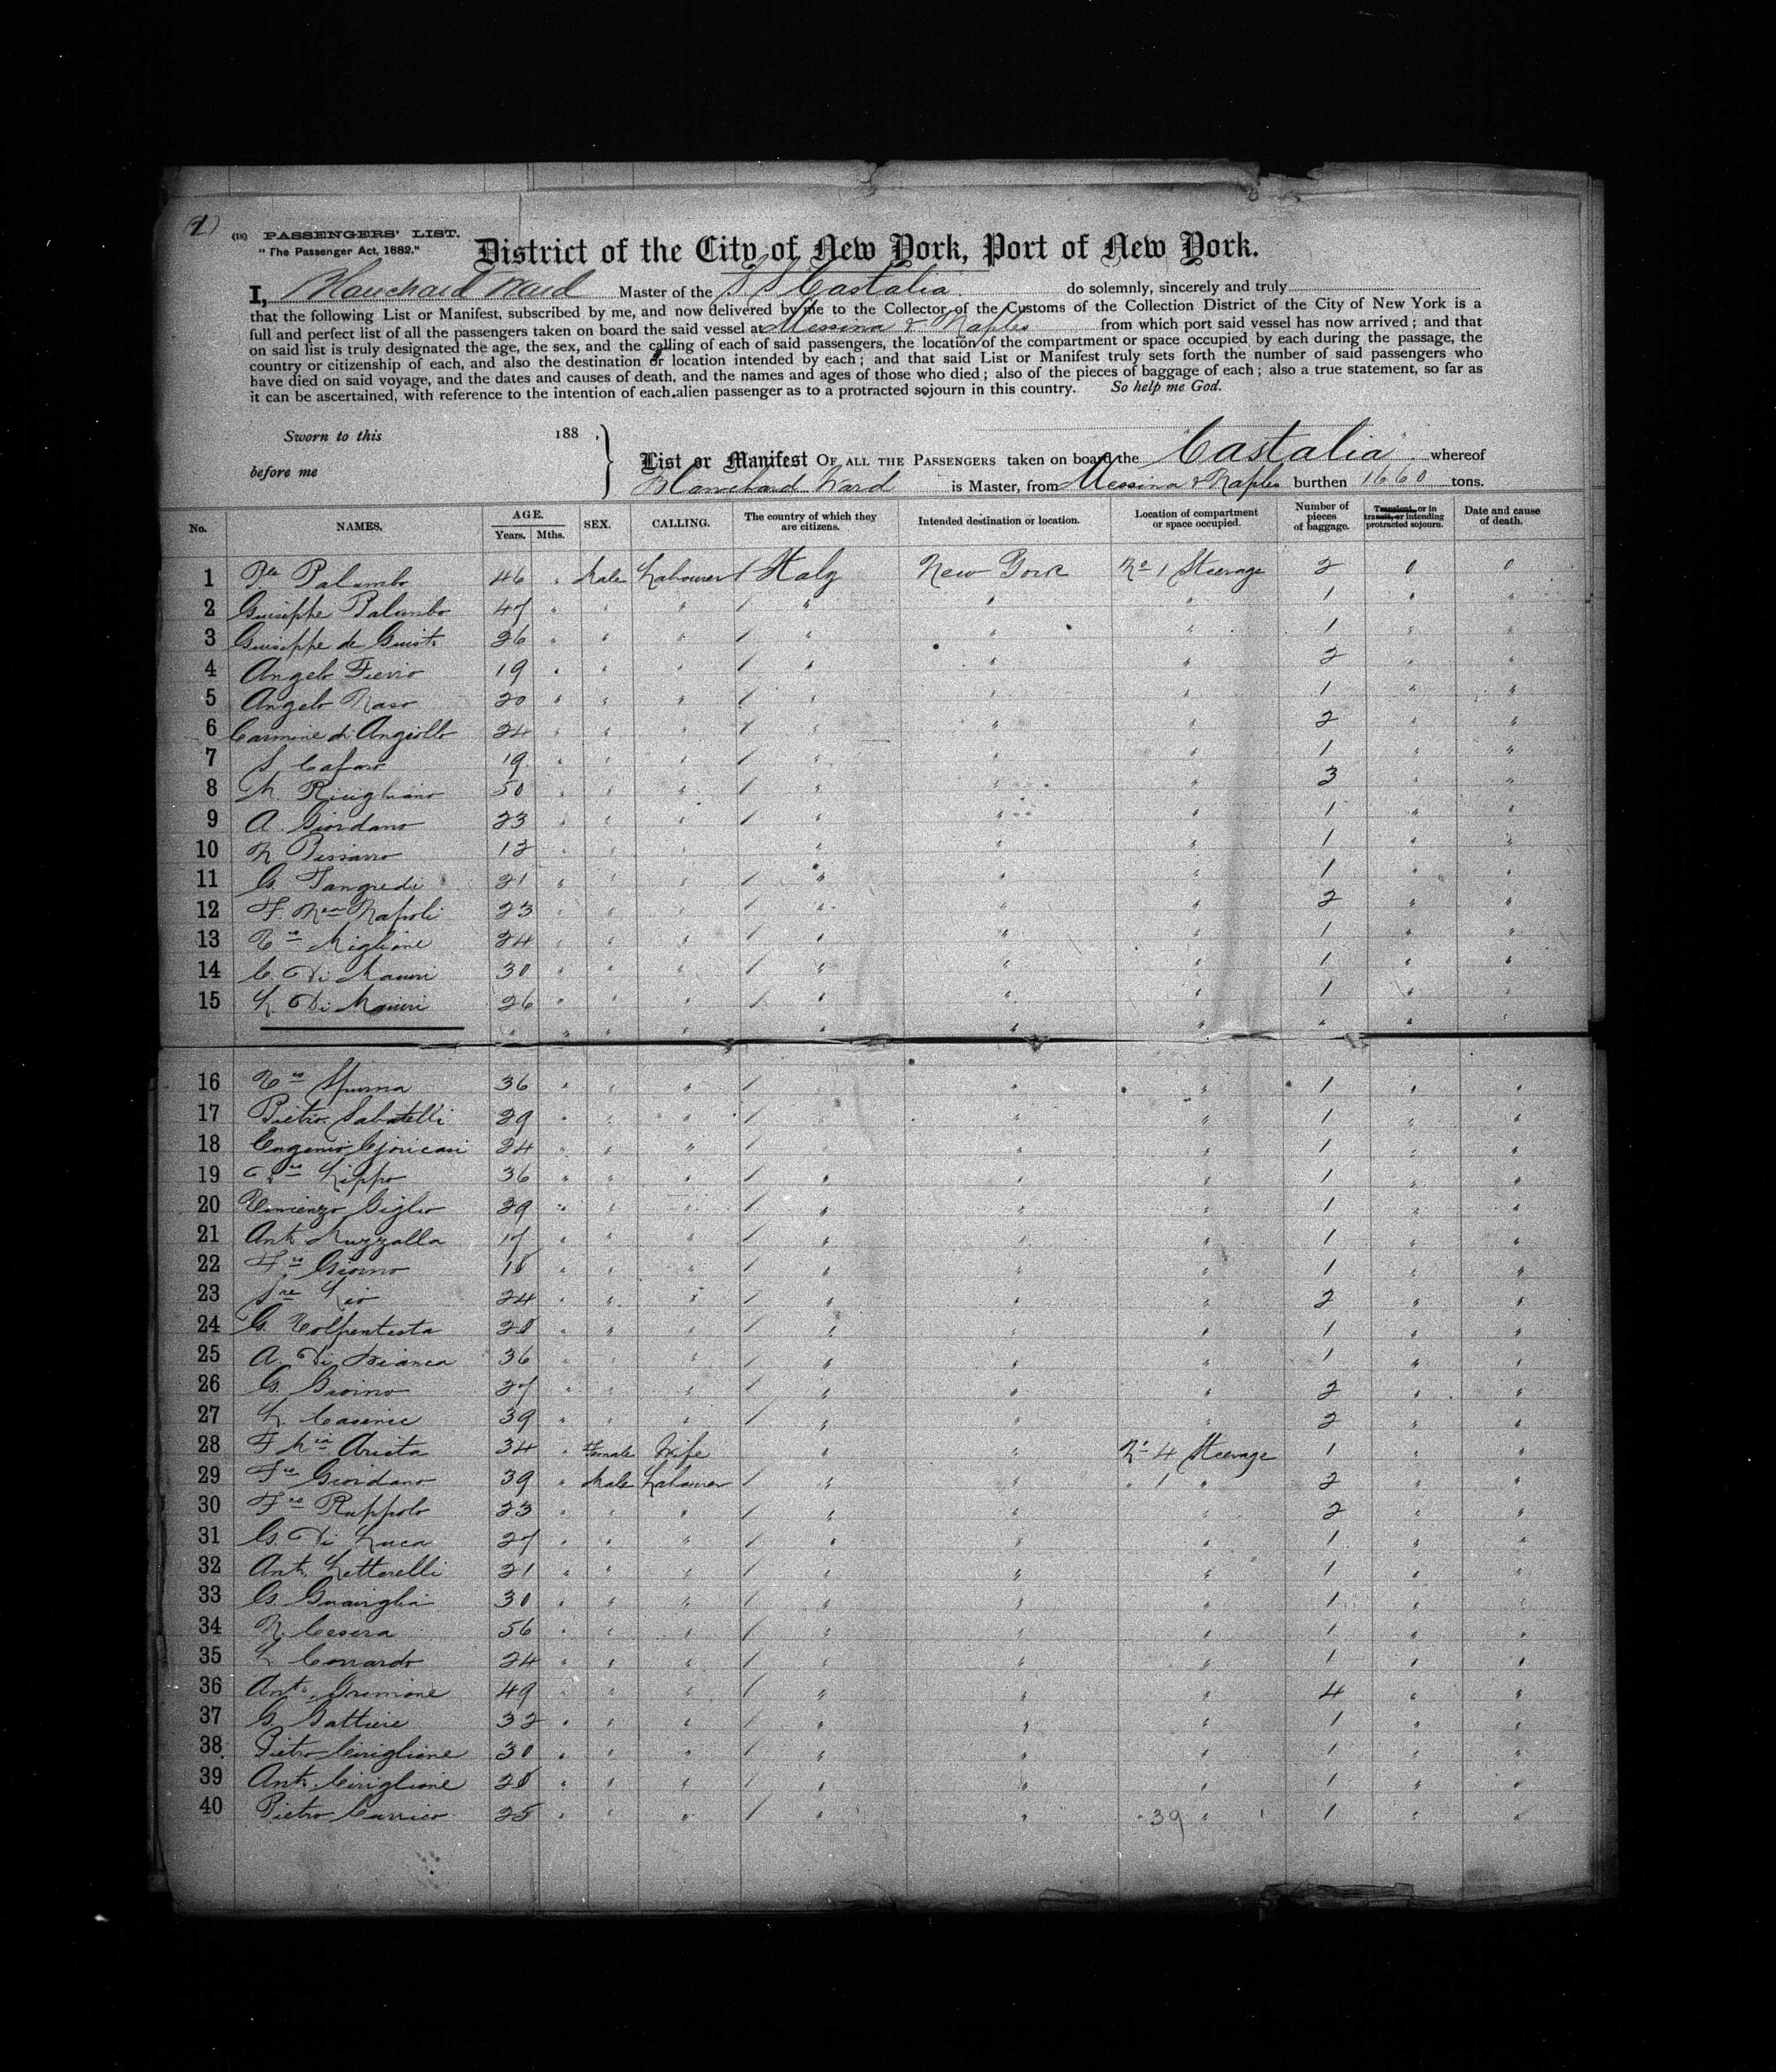 (18) PASSENGERS' LIST.
"The Passenger Act, 1882."
District of the City of New York, Port of New York.
I, Blanchard Ward Master of the S S Castalia do solemnly, sincerely and truly
that the following List or Manifest, subscribed by me, and now delivered by me to the Collector of the Customs of the Collection District of the City of New York is a
full and perfect list of all the passengers taken on board the said vessel at Messina & Naples from which port said vessel has now arrived; and that
on said list is truly designated the age, the sex, and the calling of each of said passengers, the location of the compartment or space occupied by each during the passage, the
country or citizenship of each, and also the destination or location intended by each; and that said List or Manifest truly sets forth the number of said passengers who
have died on said voyage, and the dates and causes of death, and the names and ages of those who died; also of the pieces of baggage of each; also a true statement, so far as
it can be ascertained, with reference to the intention of each alien passenger as to a protracted sojourn in this country. So help me God.
Sworn to this 188 .
before me
List or Manifest OF ALL THE PASSENGERS taken on board the Castalia whereof
Blanchard Ward is Master, from Messina & Naples burthen 1660 tons.
No. NAMES. AGE. Years. Mths. SEX. CALLING. The country of which they are citizens. Intended destination or location. Location of compartment or space occupied. Number of pieces of baggage. Transient, or in transit, or intending protracted sojourn. Date and cause of death.
1 Palumbo 46 " Male Labourer / Italy New York No 1 Steerage 2 0 0
2 Guiseppe Palumbo 47 " " " / " " " 1 " "
3 Guiseppe de Guisti 26 " " " / " " " 1 " "
4 Angelo Fierro 19 " " " / " " " 2 " "
5 Angelo Naso 20 " " " / " " " 1 " "
6 Carmine di Angiollo 24 " " " / " " " 2 " "
7 S Cafaro 19 " " " / " " " 1 " "
8 M Ricigliano 50 " " " / " " " 3 " "
9 A. Giordano 23 " " " / " " " 1 " "
10 N 12 " " " " " " 1 " "
11 G. Tangredi 21 " " " / " " " 1 " "
12 F. Napoli 23 " " " / " " " 2 " "
13 Miglione 24 " " " / " " " 1 " "
14 C. Di Mauri 30 " " " / " " " 1 " "
15 L. Di Mauri 26 " " " / " " " 1 " "
" " " " " " " " " "
16 Spurma 36 " " " / " " 1 " "
17 Pietro Sabatelli 29 " " " / " " 1 " "
18 Eugenio 24 " " " / " " 1 " "
19 Lippo 36 " " " / " " " 1 " "
20 Vincenzo Giglio 39 " " " / " " " 1 " "
21 Ant. Muzzalla 17 " " " / " " " 1 " "
22 Fco Giorno 18 " " " / " " " 1 " "
23 Sre Lio 24 " " " / " " " 2 " "
24 G. Volpentesta 28 " " " / " " " 1 " "
25 A. Di Bianca 36 " " " / " " " 1 " "
26 G. Gioino 27 " " " / " " " 2 " "
27 L. Casenie 39 " " " / " " " 2 " "
28 F. Mia Arieta 34 " Female Wife " " No 4 Steerage 1 " "
29 Fco Giordano 39 " Male Labourer / " " " 1 " 2 " "
30 Fco Ruppolo 23 " " " / " " " 2 " "
31 G. Di Luca 27 " " " / " " " 1 " "
32 Ant. Lettorelli 21 " " " / " " " 1 " "
33 G. 30 " " " / " " " 1 " "
34 N. Cesera 56 " " " / " " " 1 " "
35 L Corrardo 24 " " " / " " " 1 " "
36 Anto. Grimone 49 " " " / " " " 4 " "
37 G. Gattiere 32 " " " / " " " 1 " "
38 Pietro Ciriglione 30 " " " / " " " 1 " "
39 Ant. Ciriglione 28 " " " / " " " 1 " "
40 Pietro Carrico 25 " " " / " " " 1 " "
39